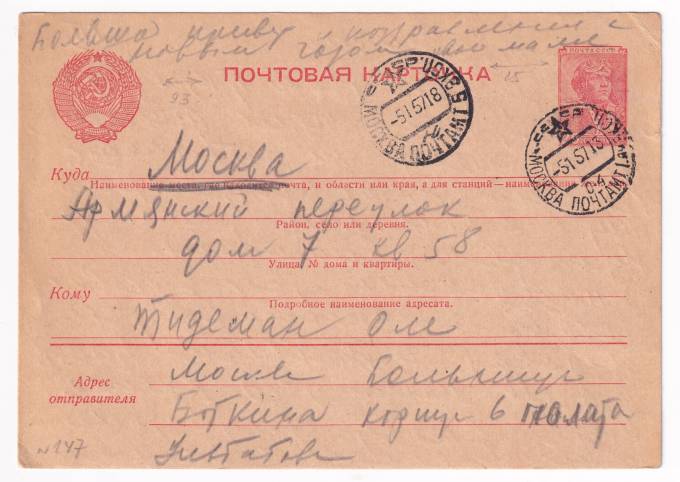 Больша привет поздравления с
новым годом
ПОЧТА СССР
ПОЧТОВАЯ КАРТОЧКА
93
25
СССР
МОСКВА ПОЧТАМТ
-5157 18
СССР
МОСКВА ПОЧТАМТ
-5157 13
Куда Москва
Наименование места, где находится почта, и области или края, а для станций—наименование
Армянский переулок
Район, село или деревня.
дом 7 кв 58
Улица, № дома и квартиры.
Кому
Подробное наименование адресата.
Тидеман Оле
Адрес
отправителя
Москва Больница
Боткина корпус 6 палата
N 147